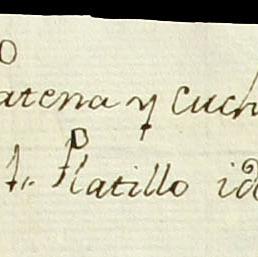 atena y cuch
Platillo id